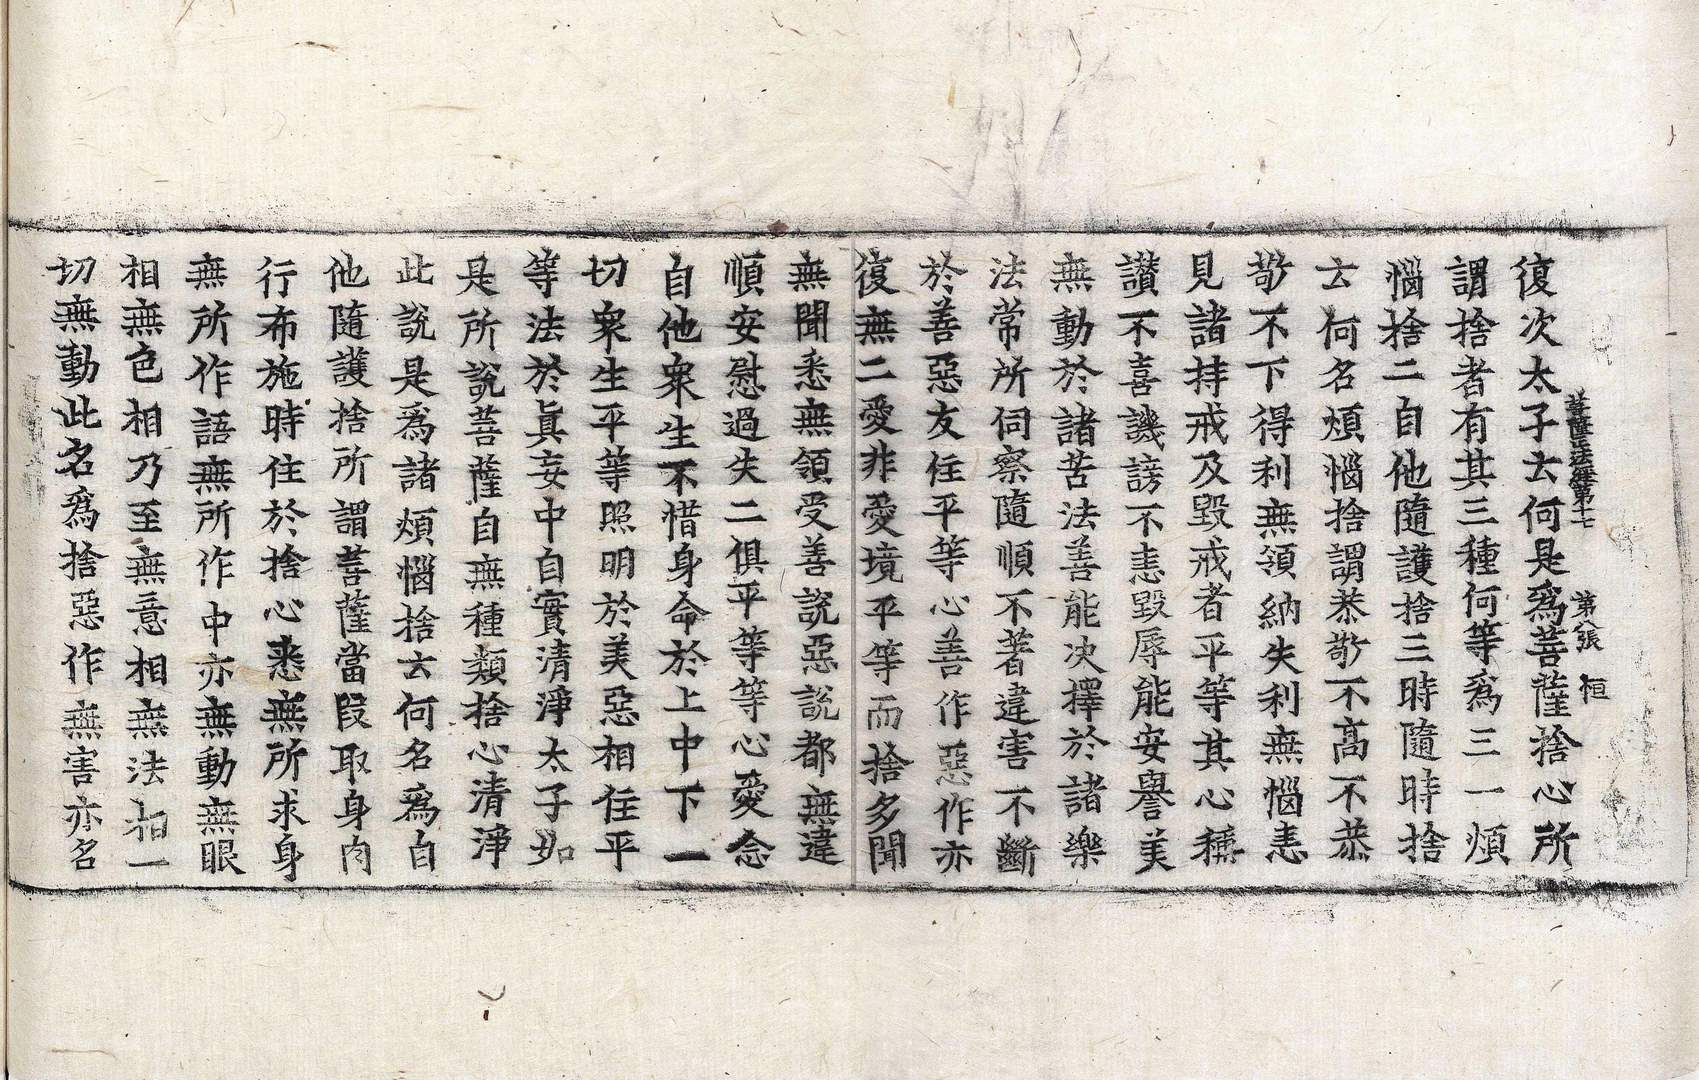 菩薩正法經第十七　第八張　恒
復次太子云何是爲菩薩捨心所
謂捨者有其三種何等爲三一煩
惱捨二自他隨護捨三時隨時捨
云何名煩惱捨謂恭敬不高不恭
敬不下得利無領納失利無惱恚
見諸持戒及毀戒者平等其心稱
讃不喜譏謗不恚毀辱能安譽美
無動於諸苦法善能决擇於諸樂
法常所伺察隨順不著違害不斷
於善惡友住平等心善作惡作亦
復無二愛非愛境平等而捨多聞
無聞悉無領受善說惡說都無違
順安慰過失二俱平等等心愛念
自他衆生不惜身命於上中下一
切衆生平等照明於美惡相住平
等法於眞妄中自實清淨太子如
是所說菩薩自無種類捨心清淨
此說是爲諸煩惱捨云何名爲自
他隨護捨所謂菩薩當叚取身肉
行布施時住於捨心悉無所求身
無所作語無所作中亦無動無眼
相無色相乃至無意相無法相一
切無動此名爲捨惡作無害亦名